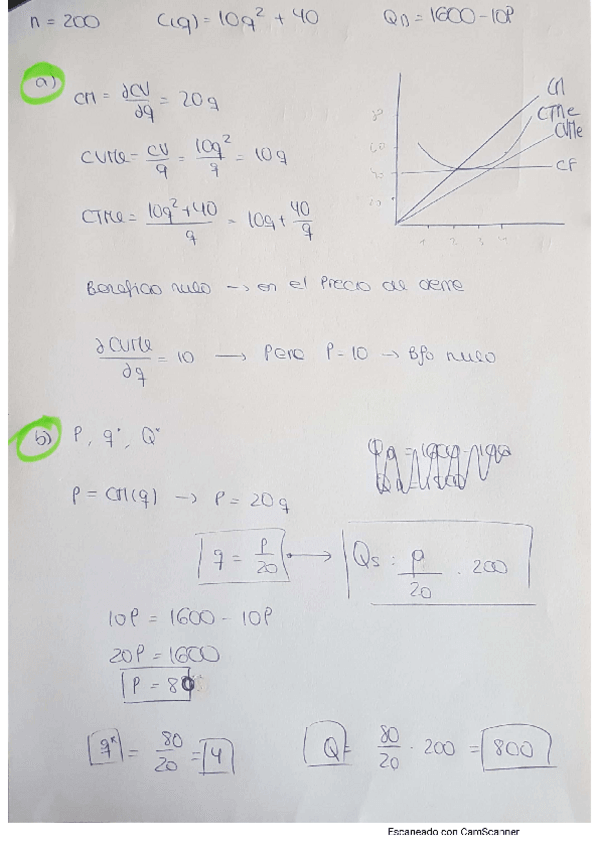 n = 200 C(q) = 10q² + 40 QD = 1600 - 10P
a)
CM = ∂CV/∂q = 20q
CVMe = CV/q = 10q²/q = 10q
CTMe = (10q² + 40)/q = 10q + 40/q
CM
CTMe
CVMe
CF
80
60
40
20
1 2 3 4
Beneficio nulo → en el precio de cierre
∂CVMe/∂q = 10 → Para P = 10 → Bfo nulo
b) P, q*, Q*
P = CM(q) → P = 20q
q = P/20 → Qs: P/20 · 200
10P = 1600 - 10P
20P = 1600
P = 80
q* = 80/20 = 4 Q = 80/20 · 200 = 800
Escaneado con CamScanner